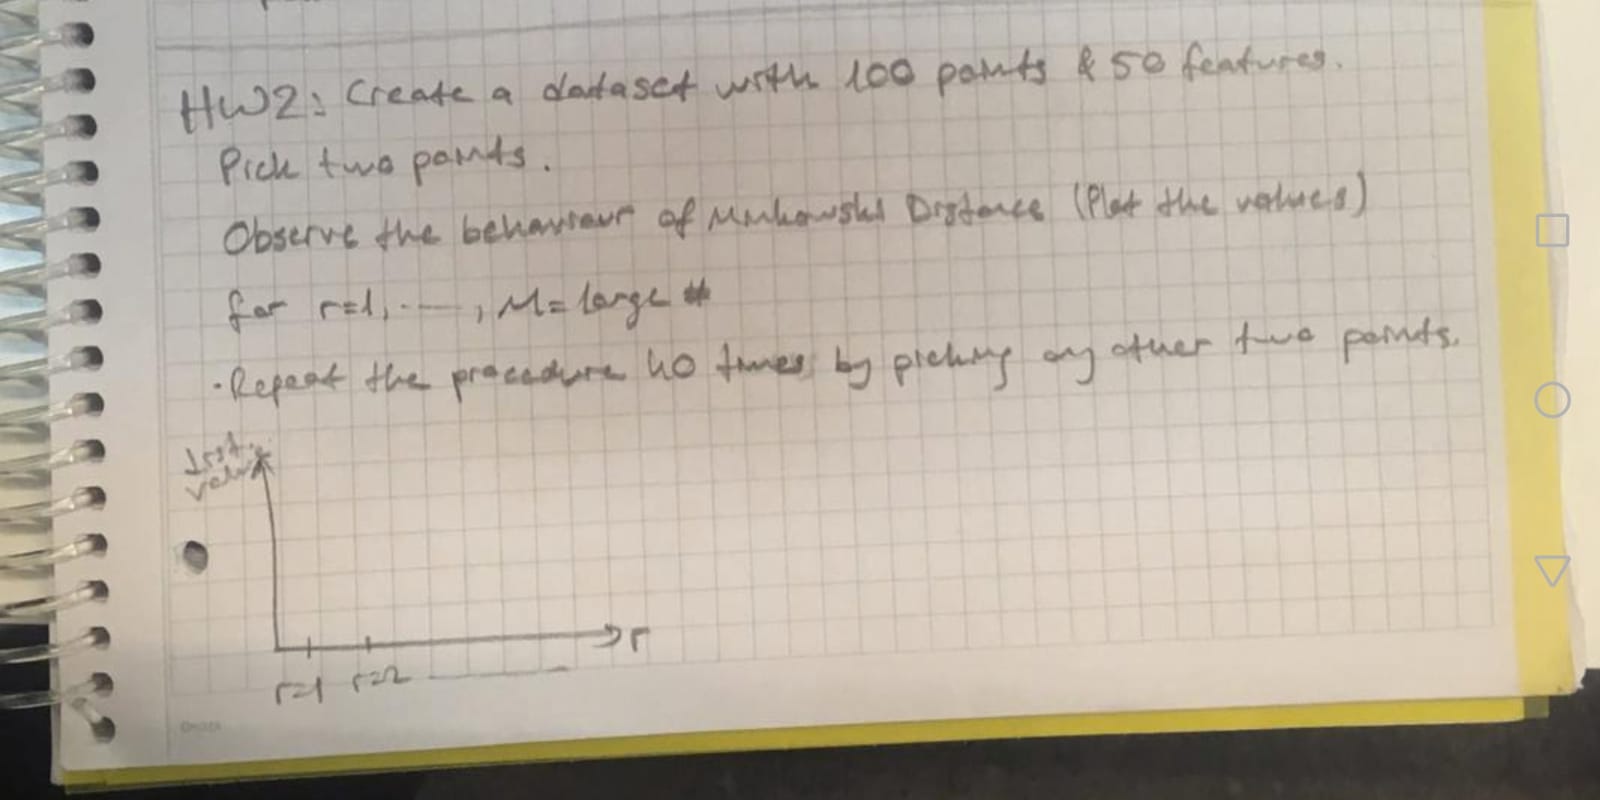 HW2: Create a dataset with 100 points & 50 features.
Pick two points.
Observe the behaviour of Minkowski Distance (Plot the values)
for r=1, ----, M= large #
• Repeat the procedure 40 times by picking any other two points.
Dist.
value
r
r=1 r=2